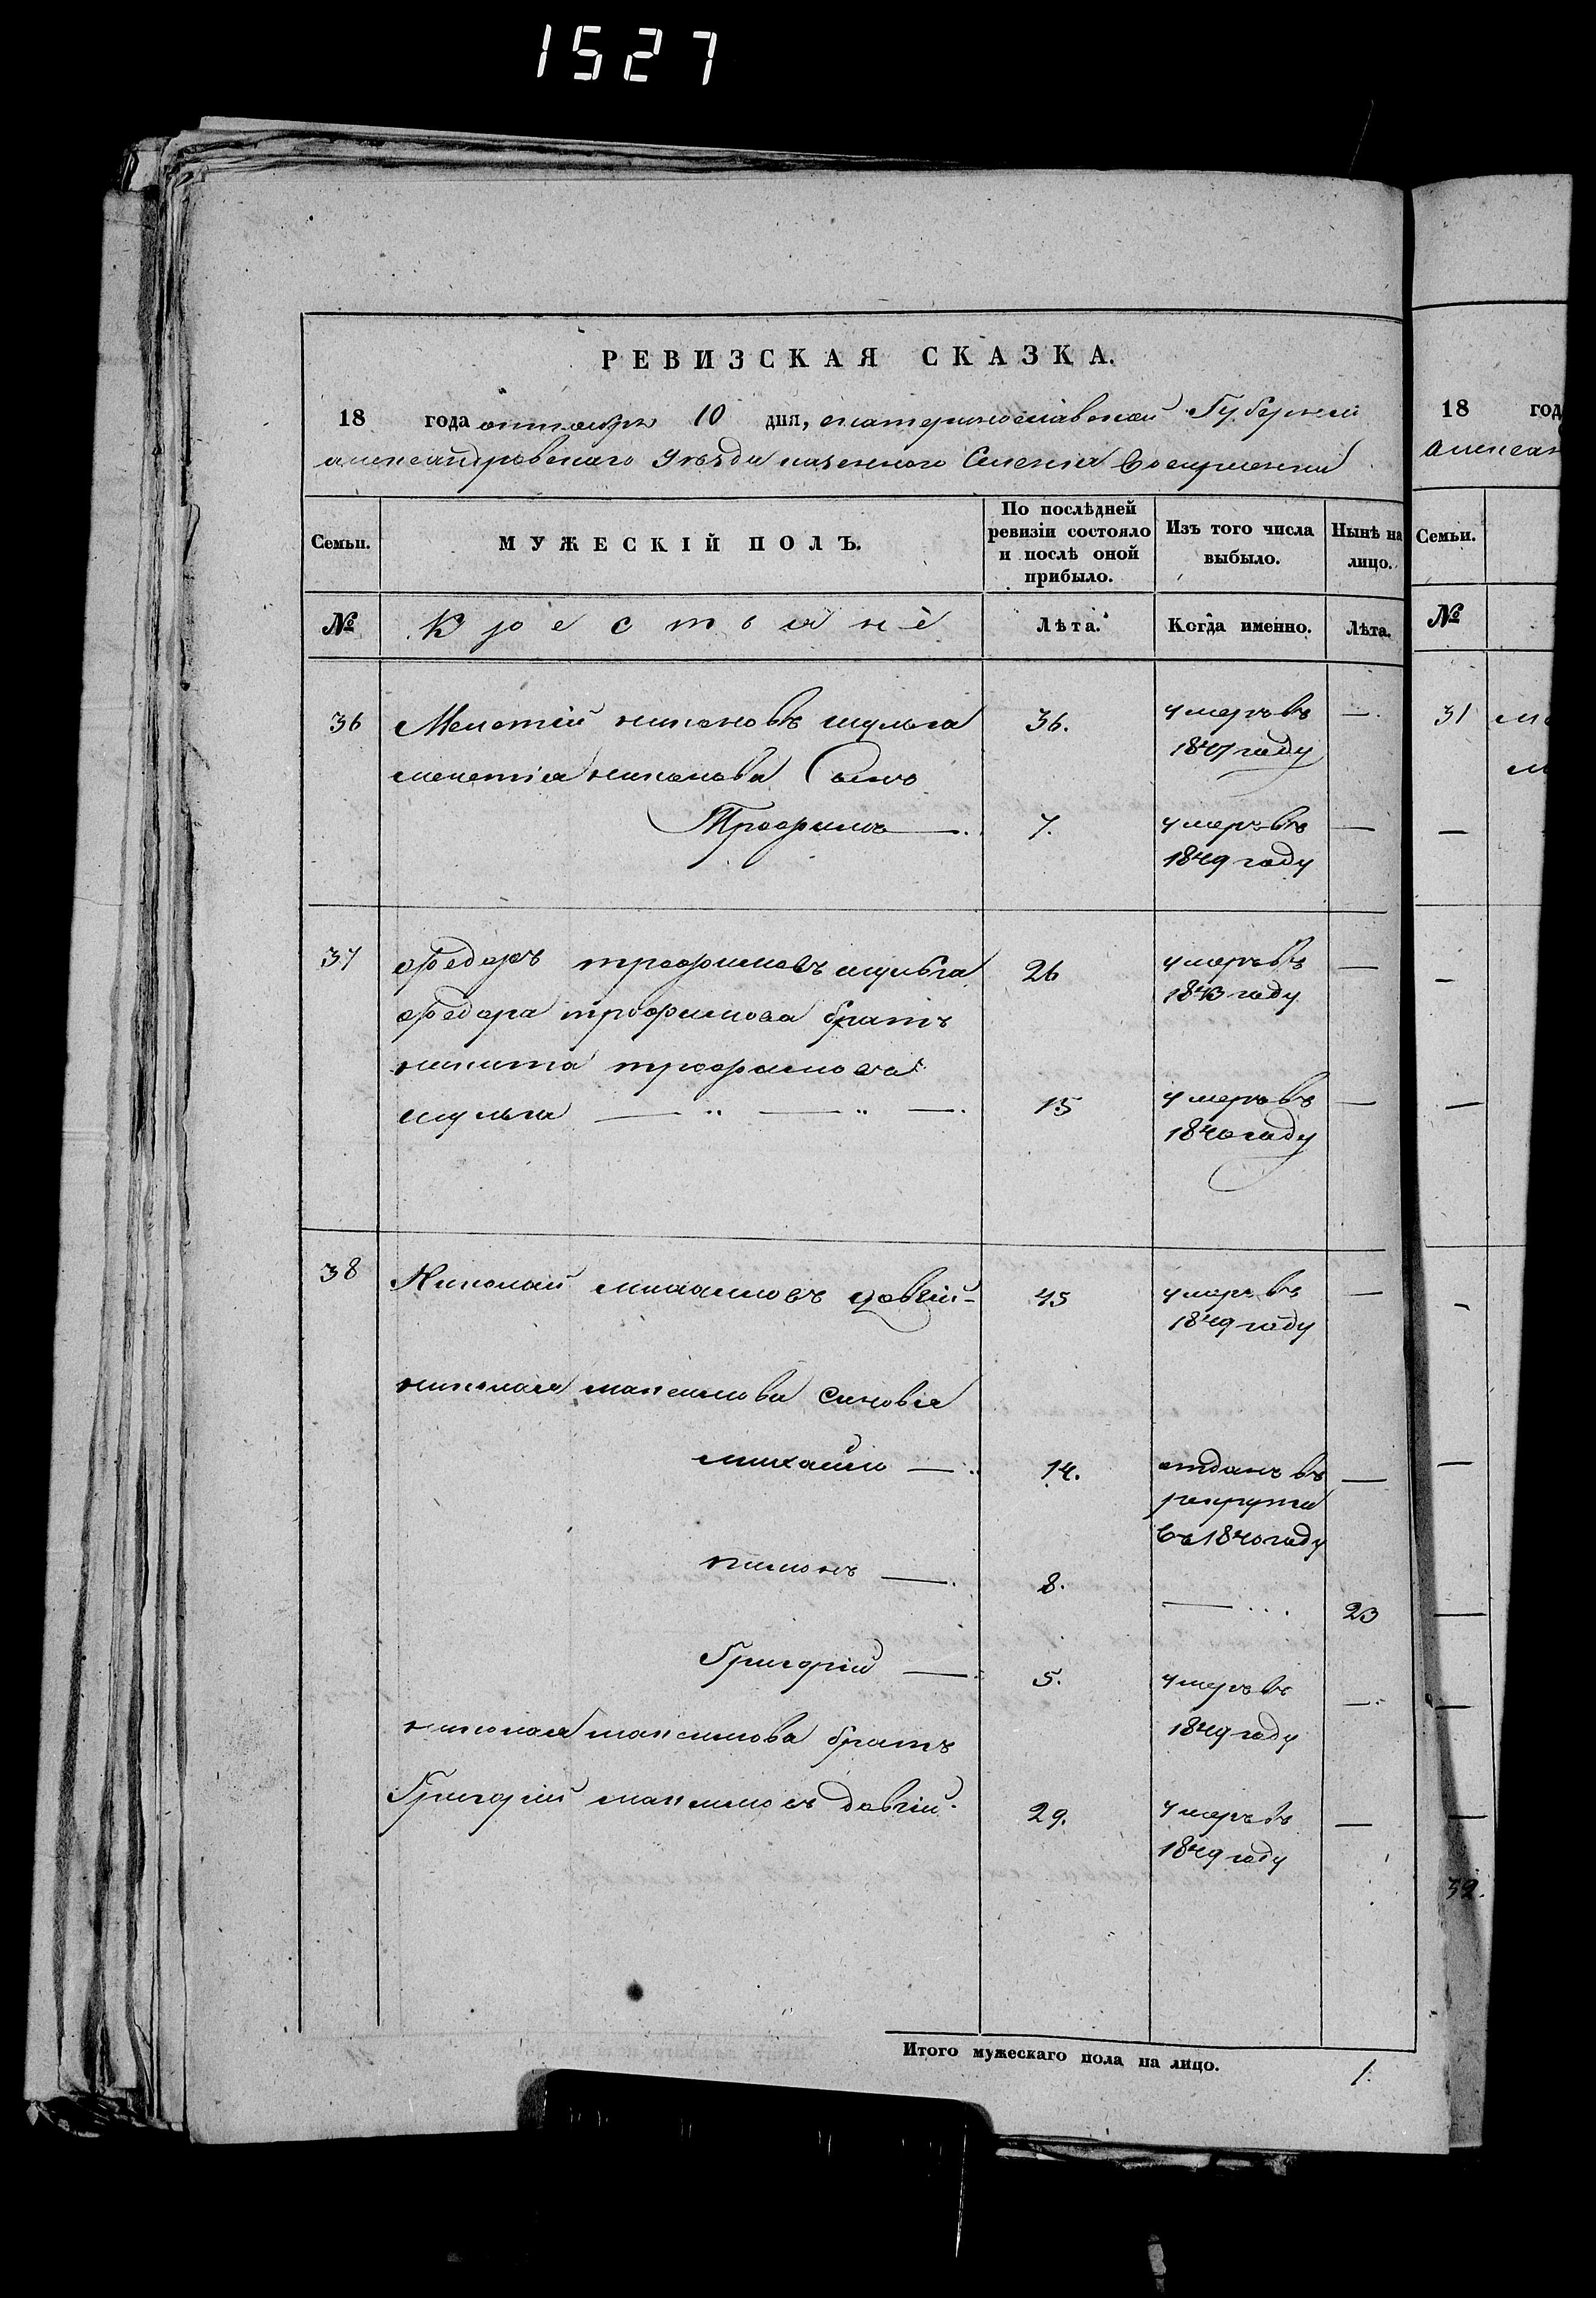 1527
РЕВИЗСКАЯ СКАЗКА.
18 года октября 10 дня, екатеринославской Губерніи
александровскаго Уѣзда казенного Селенія Воскресенки
Семьи. МУЖЕСКІЙ ПОЛЪ. По послѣдней ревизіи состояло и послѣ оной прибыло. Изъ того числа выбыло. Нынѣ на лицо.
№ Крестьяне Лѣта. Когда именно. Лѣта.
36 Мелетій никоновъ шульга 36. умеръ въ —
1847 году
мелетія никонова Сынъ
Трофимъ —. 7. умеръ въ —
1849 году
37 федоръ трофимовъ шульга 26 умеръ въ —
1843 году
федора трофимова братъ
никита трофимовъ
шульга — „ — „ —. 15 умеръ въ —
1840 году
38 Николай максимовъ довгій - 45 умеръ въ —
1849 году
николая максимова Синовія
михайло — 14. отданъ въ —
рекруты
въ 1840 году
—. 8. — ... 23
Григорій — 5. умеръ въ —
1849 году
николая максимова братъ
Григорій максимовъ довгій. 29. умеръ въ —
1849 году
Итого мужескаго пола на лицо. 1.
18 год
алексан
Семьи.
№
31
39.